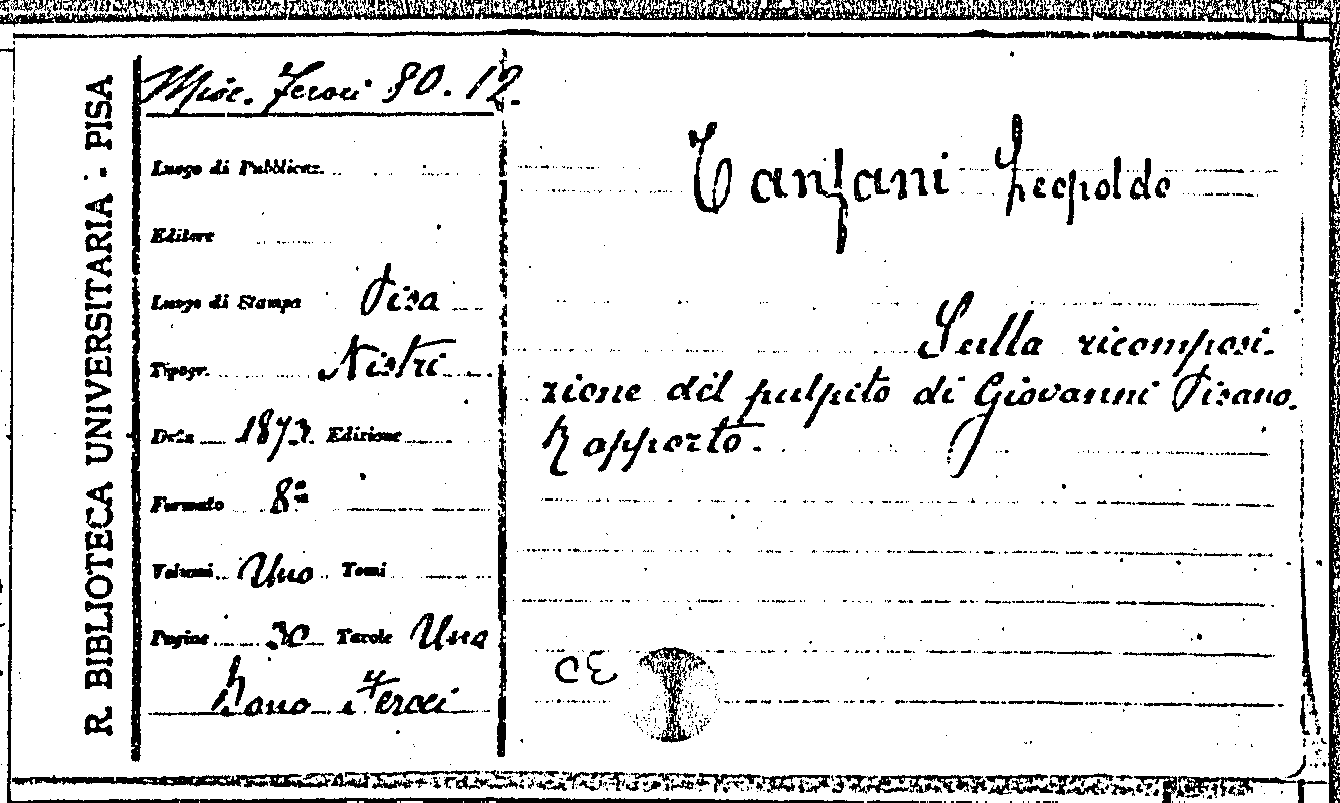 R. BIBLIOTECA UNIVERSITARIA - PISA
Misc. Feroci 80. 12.
Luogo di Pubblicaz.
Editore
Luogo di Stampa Pisa
Tipogr. Nistri
Data 1873. Edizione
Formato 8º
Volumi Uno Tomi
Pagine 30 Tavole Una
Dono Feroci
Tanfani Leopoldo
Sulla ricomposi-
zione del pulpito di Giovanni Pisano.
Rapporto.
CE